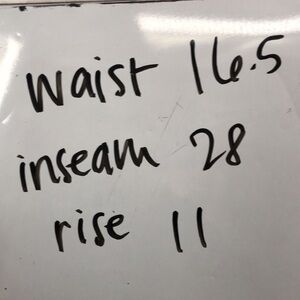 waist 16.5
inseam 28
rise 11